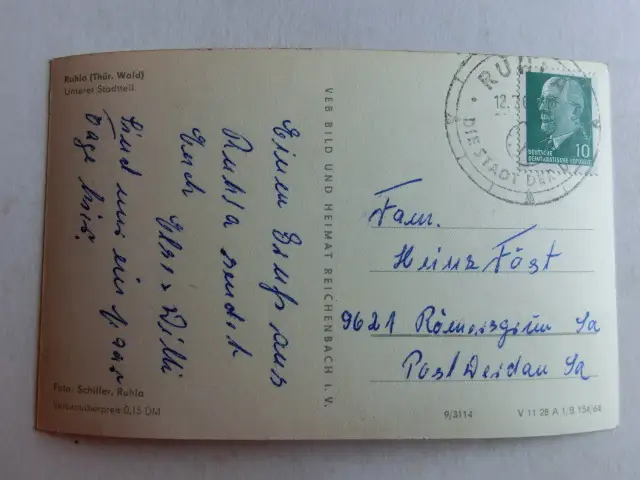 Ruhla (Thür. Wald)
Unterer Stadtteil
Einen Gruß aus
Ruhla sendet
Euch Else & Willi
Sind nur ein paar
Tage hier.
Foto: Schiller, Ruhla
Verbraucherpreis 0,15 DM
VEB BILD UND HEIMAT REICHENBACH I. V.
RUHLA
12.3.6
DIE STADT DER
DEUTSCHE
DEMOKRATISCHE REPUBLIK
10
Fam.
Heinz Föst
9621 Sa
Post Sa
9/3114
V 11 28 A 1/B 154/64